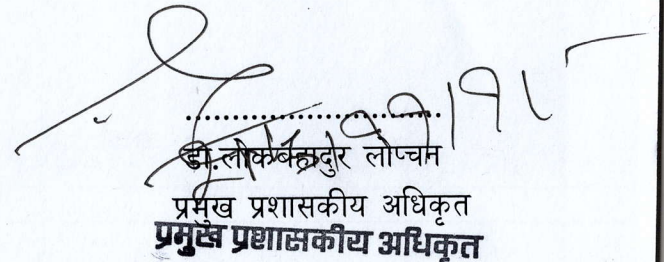 ....................................
डी.लोकबहादुर लोप्चन
प्रमुख प्रशासकीय अधिकृत
प्रमुख प्रशासकीय अधिकृत